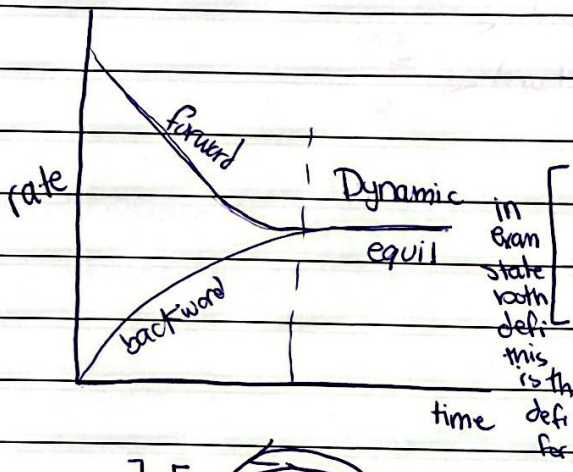 rate
forward
backword
Dynamic
equil
time
in
exan
state
both
defi
this
is th
defi
for